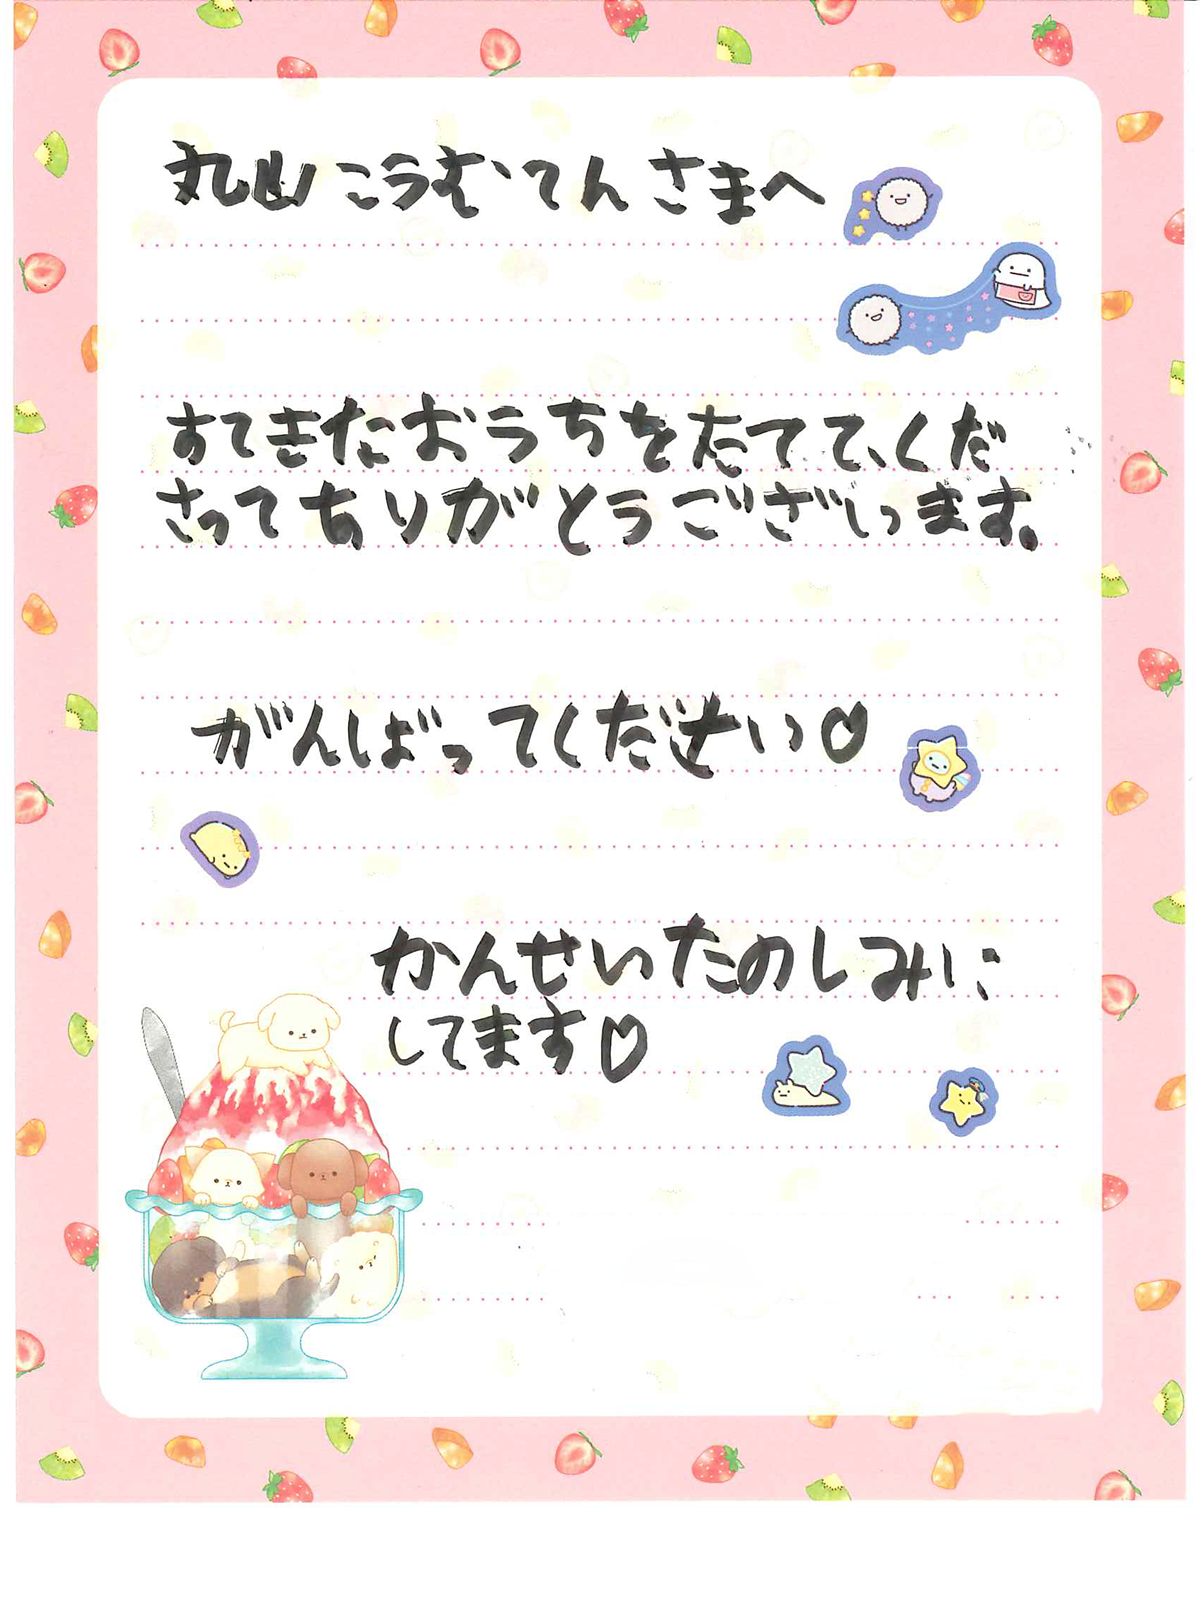 丸山こうむてんさまへ
すてきたおうちをたてて、くだ
さってありがとうございます。
がんばってください♡
かんせいたのしみに
してます♡